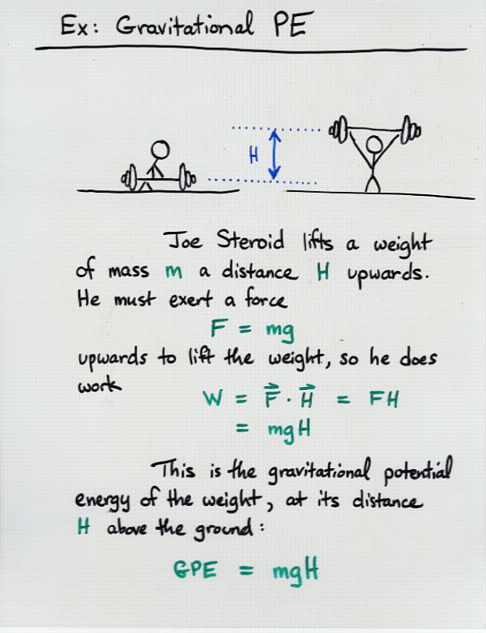 Ex: Gravitational PE
H
Joe Steroid lifts a weight
of mass m a distance H upwards.
He must exert a force
F = mg
upwards to lift the weight, so he does
work
W = F⃗ · H⃗ = FH
= mgH
This is the gravitational potential
energy of the weight, at its distance
H above the ground:
GPE = mgH